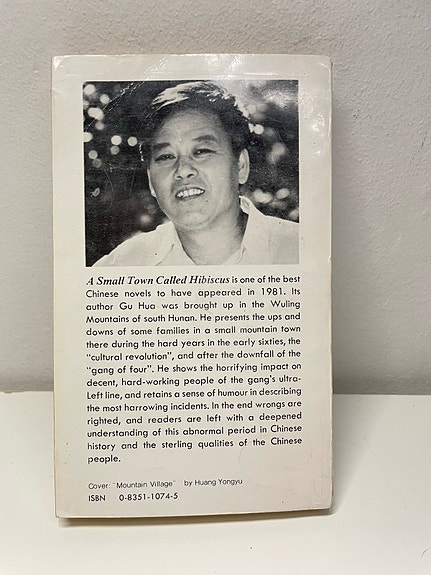 A Small Town Called Hibiscus is one of the best
Chinese novels to have appeared in 1981. Its
author Gu Hua was brought up in the Wuling
Mountains of south Hunan. He presents the ups and
downs of some families in a small mountain town
there during the hard years in the early sixties, the
"cultural revolution", and after the downfall of the
"gang of four". He shows the horrifying impact on
decent, hard-working people of the gang's ultra-
Left line, and retains a sense of humour in describing
the most harrowing incidents. In the end wrongs are
righted, and readers are left with a deepened
understanding of this abnormal period in Chinese
history and the sterling qualities of the Chinese
people.
Cover: "Mountain Village" by Huang Yongyu
ISBN 0-8351-1074-5